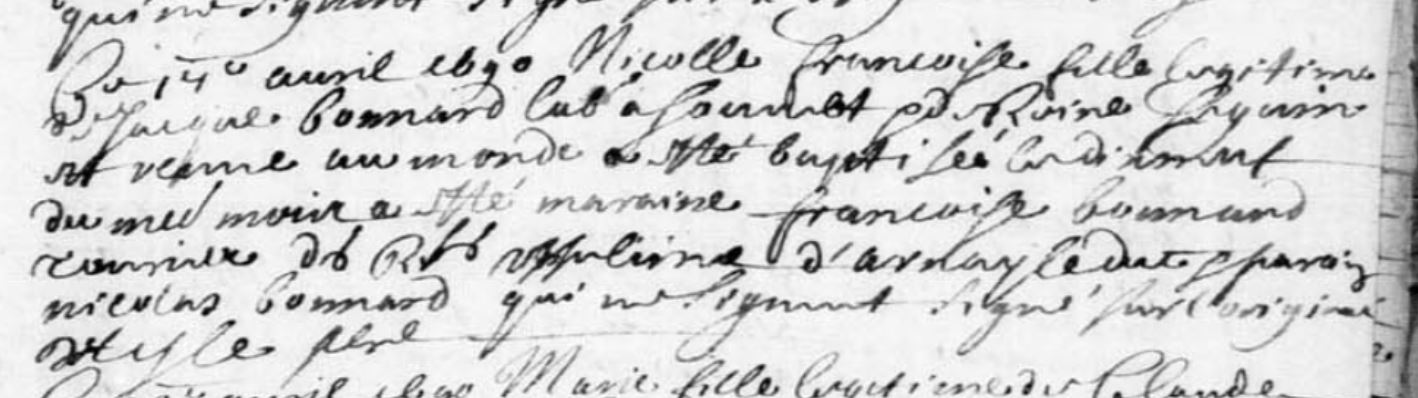 qui ne signent signé sur
Ce 14e avril 1690 Nicolle francoise fille legitime
de Jacque bonnard lab a et de Reine Seguin
est venue au monde a esté baptiseé le dix neuf
du med moix a esté maraine francoise bonnard
touriere ds Rses ursuline d'arnay le duc parain
nicolas bonnard qui ne signent signé sur l'original
le pere
avril 1690 Marie fille legitime de Claude